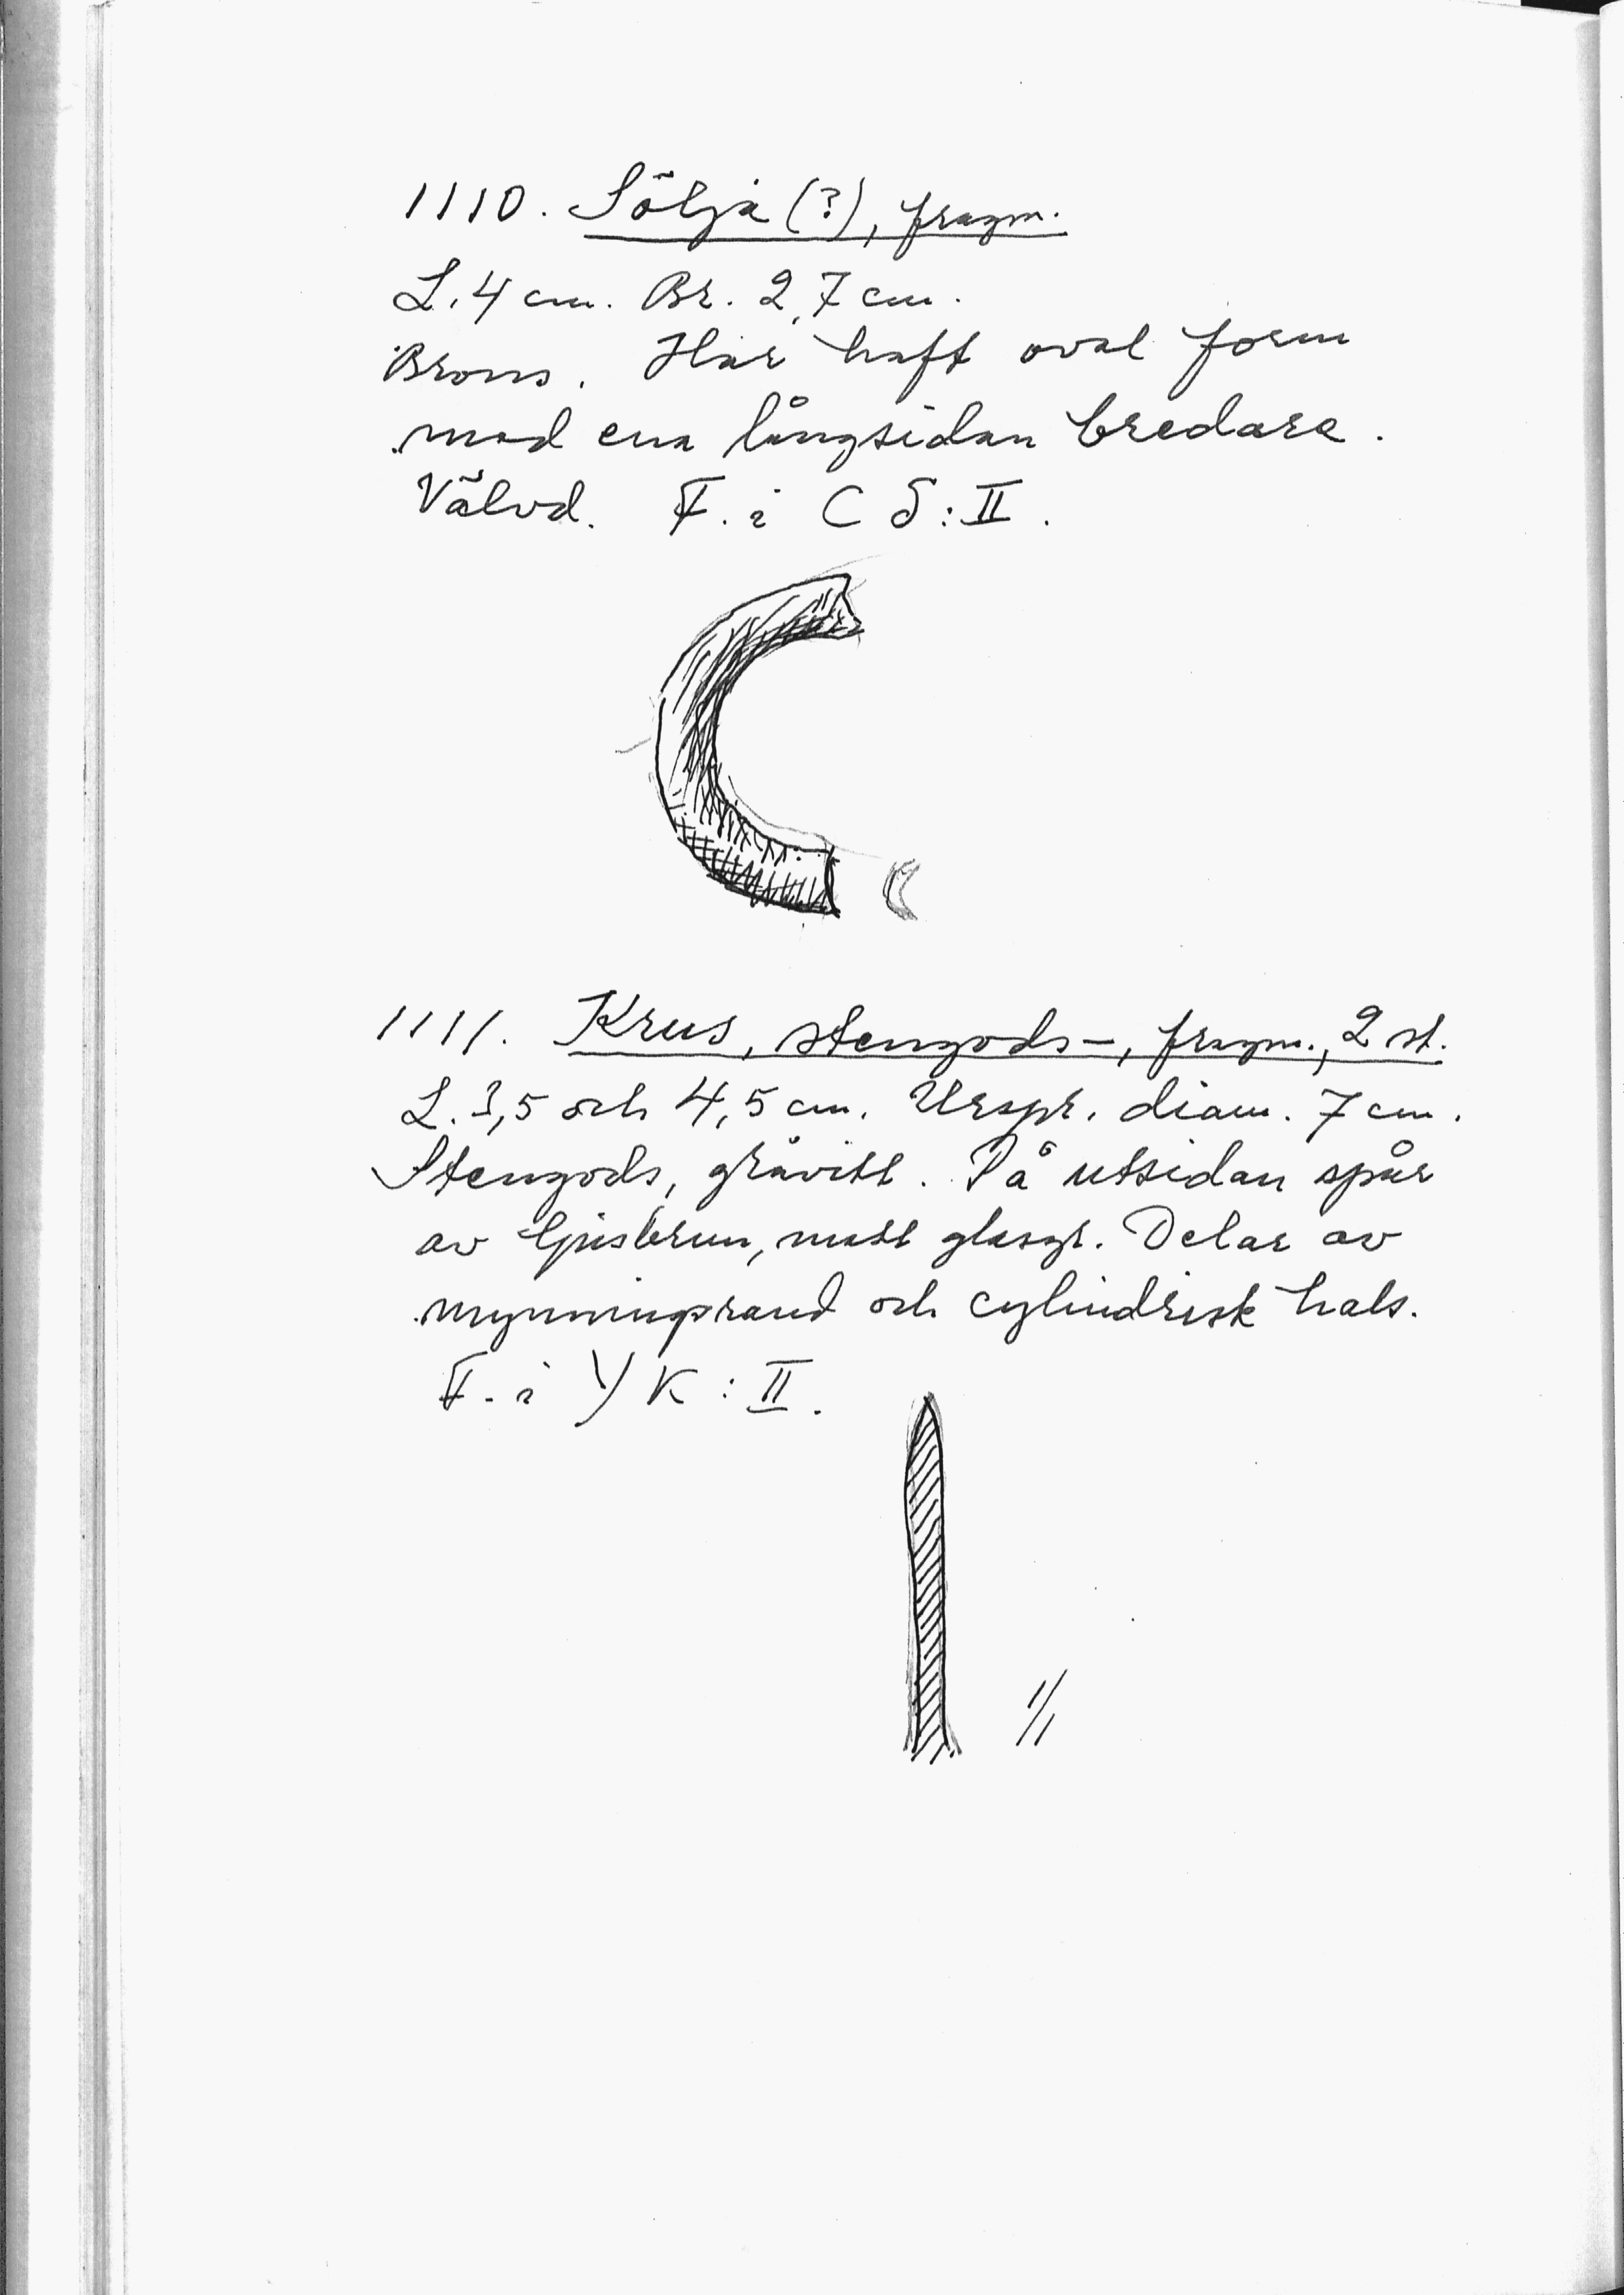 1110. Sölja (?), fragm.
L. 4 cm. Br. 2,7 cm.
Brons. Har haft oval form
med ena långsidan bredare.
Välvd. F. i C δ : II.
1111. Krus, stengods-, fragm., 2 st.
L. 3,5 och 4,5 cm. Urspr. diam. 7 cm.
Stengods, gråvitt. På utsidan spår
av ljusbrun, matt glasyr. Delar av
mynningsrand och cylindrisk hals.
F. i Y K : II.
1/1